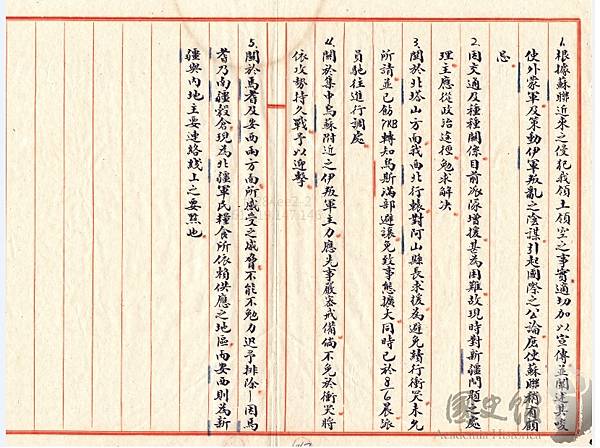 1.根據蘇聯近來之侵犯我領土領空之事實適切加以宣傳並闡述其唆
使外蒙軍及策動伊軍叛亂之陰謀引起國際之公論庶使蘇聯稍有顧
忌
2.因交通及種種關係目前派隊增援甚為困難故現時對新疆問題之處
理主應從政治途徑勉求解決
3.關於北塔山方面我西北行轅對阿山縣長求援為避免續行衝突未允
所請並已飭7KB轉知烏斯滿部避讓免致事態擴大同時已於8/6晨派
員馳往進行調處
4.關於集中烏蘇附近之伊叛軍主力應先事嚴密戒備倘不免於衝突時
依攻勢持久戰予以迎擊
5.關於焉耆及婁西兩方面所感受之威脅不能不勉力迅予排除—因焉
耆乃南疆穀倉現為北疆軍民糧食所依賴供應之地區而婁西則為新
疆與內地主要連絡綫上之要點也
國史館
Academia Historica